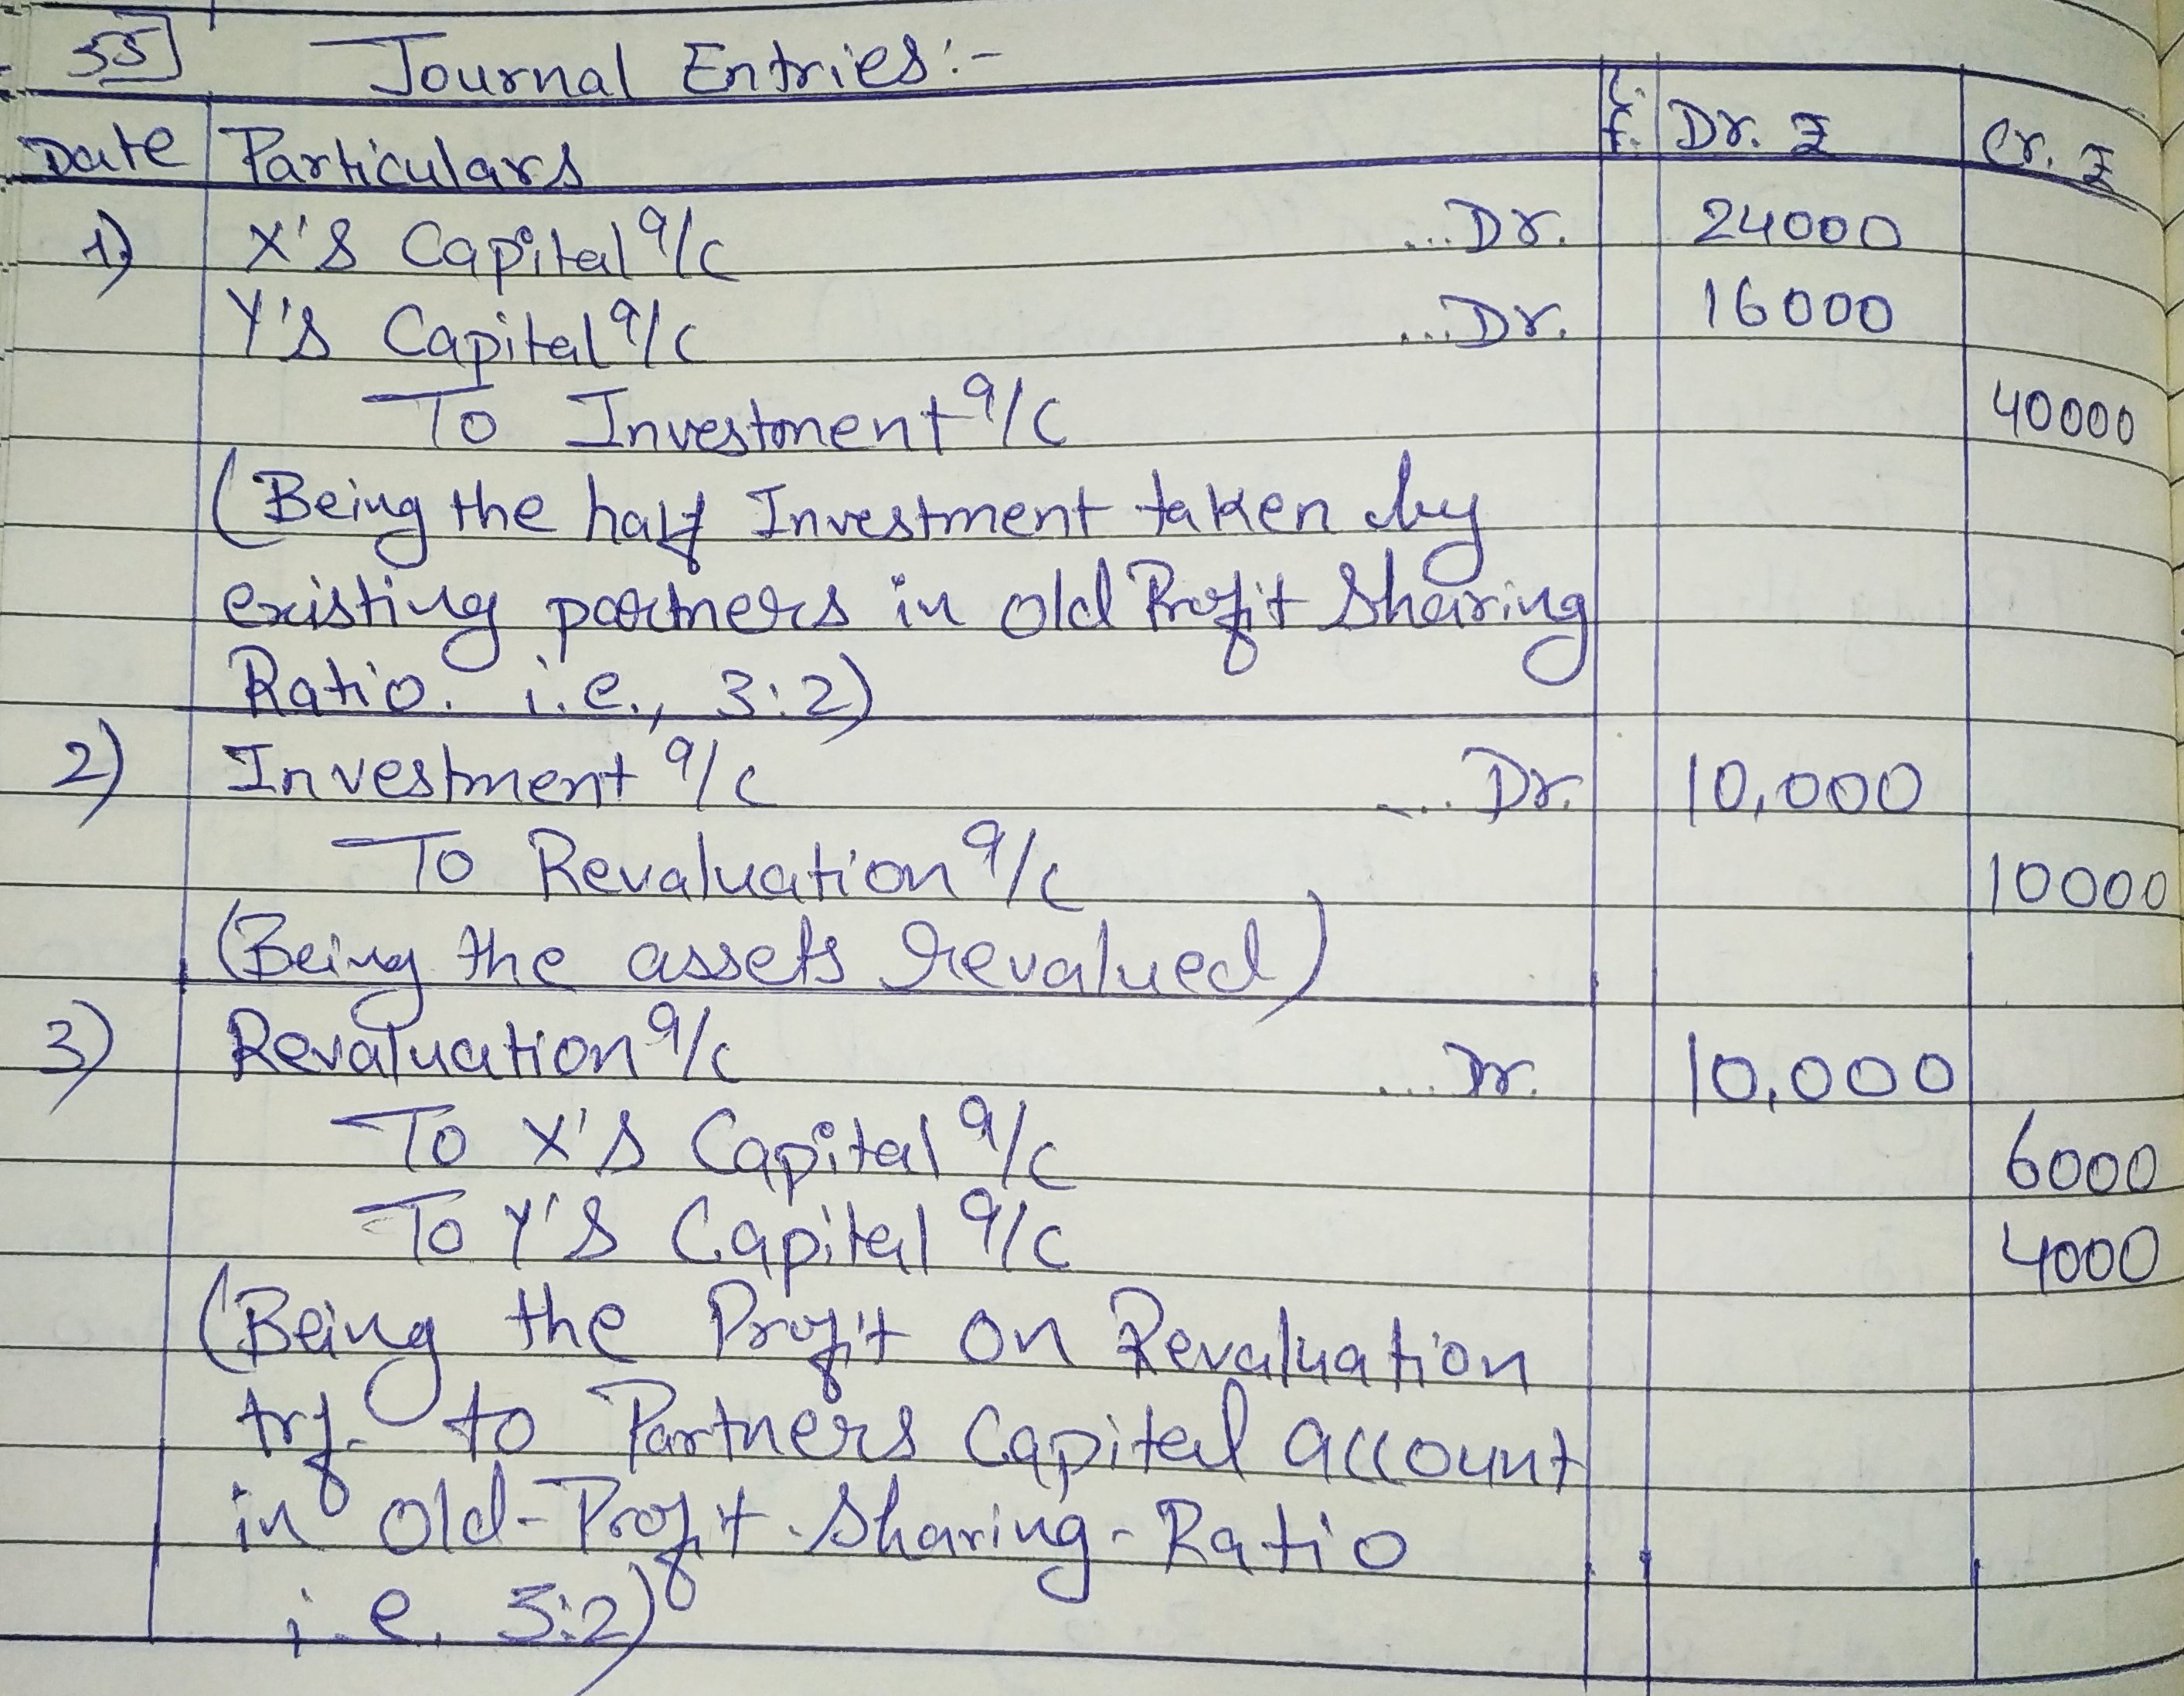 55] Journal Entries:-
Date Particulars L.f. Dr. ₹ Cr. ₹
1) X's Capital a/c ...Dr. 24000
Y's Capital a/c ...Dr. 16000
To Investment a/c 40000
(Being the half Investment taken by
existing partners in old Profit Sharing
Ratio. i.e., 3:2)
2) Investment a/c ... Dr. 10,000
To Revaluation a/c 10000
(Being the assets revalued)
3) Revaluation a/c ... Dr. 10,000
To X's Capital a/c 6000
To Y's Capital a/c 4000
(Being the Profit on Revaluation
trf. to Partners Capital account
in Old-Profit-Sharing-Ratio
i.e. 3:2)